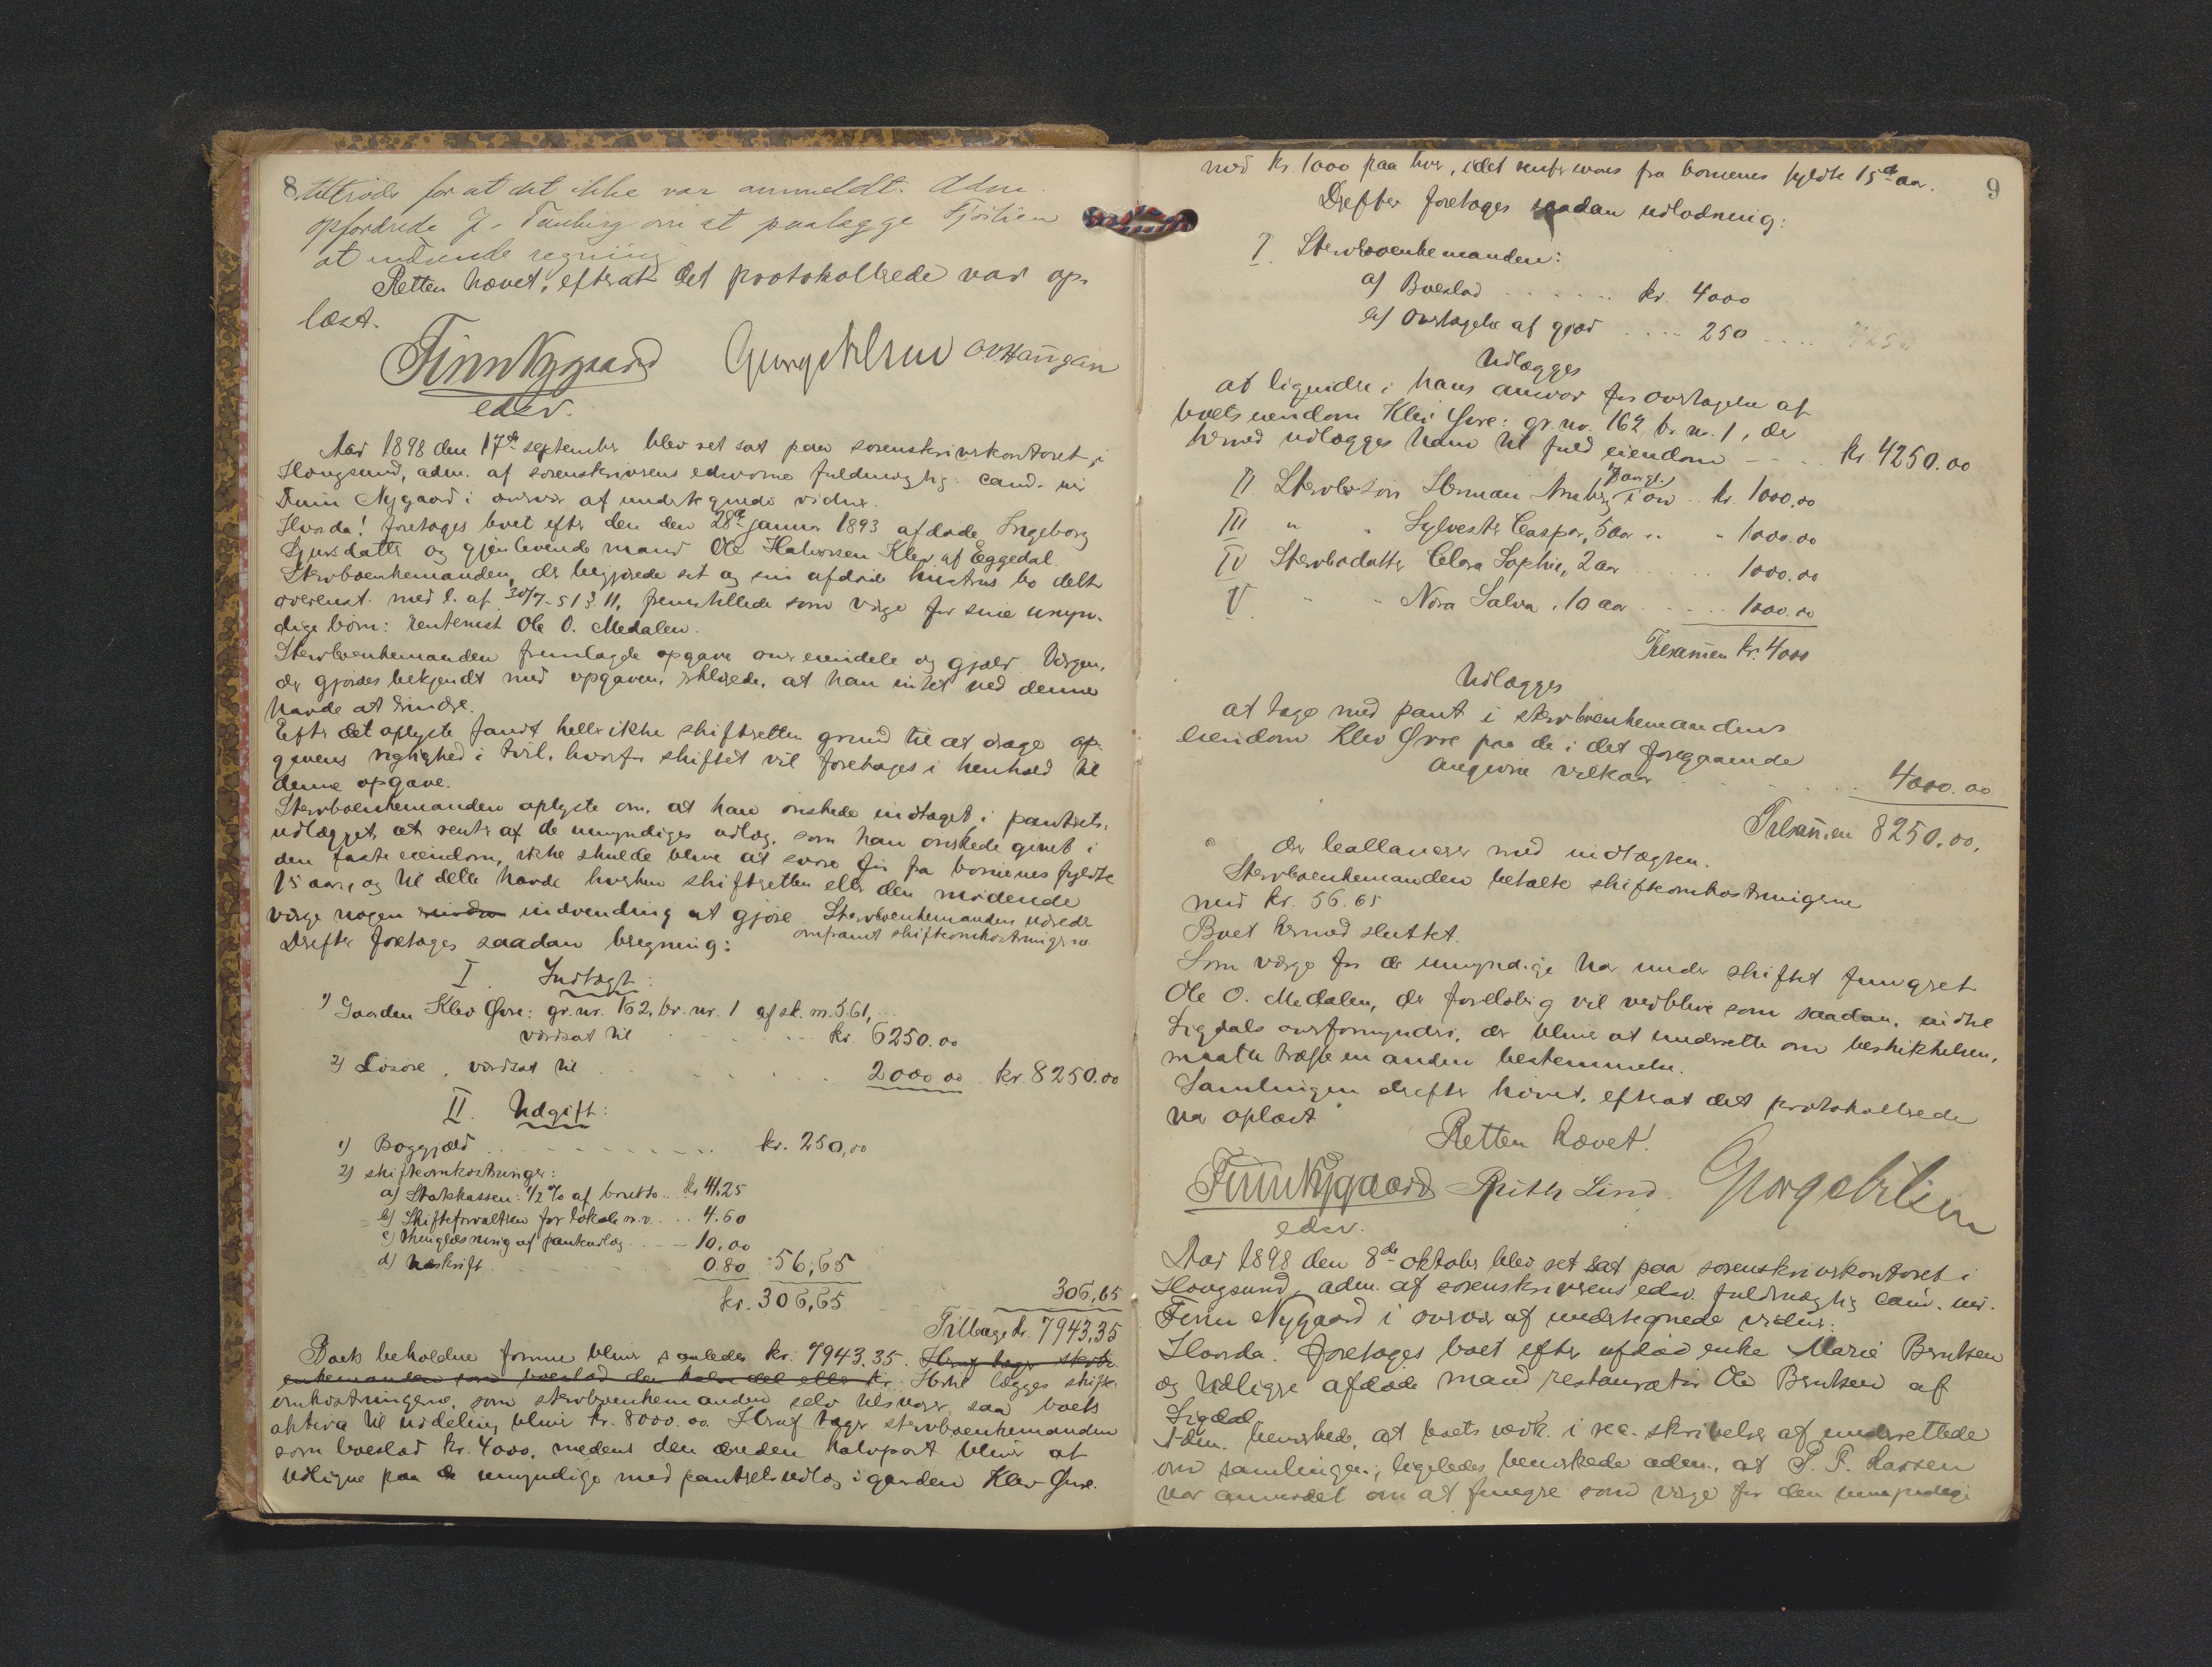 8.
tiltrods for at det ikke var anmeldt. Adm.
opfordrede J. Tanberg om at paalægge Fjöslien
at indsende regning
Retten hævet, efterat det protokollerede var op-
læst.
Finn Nygaard
edsv.
Aar 1898 den 17de september blev ret sat paa sorenskriverkontoret i
Hougsund, adm. af sorenskriverens edsvorne fuldmægtig: cand. jur
Finn Nygaard i overvær af undertegnede vidner.
Hvorda! foretoges boet efter den den 28de januar 1893 afdøde Ingeborg
datter og gjenlevende mand Ole Halvorsen Klev af Eggedal.
Stervboenkemanden, der begjærede sit og sin afdøde hustrus bo delt
overenst. med l. af 30/7-51 § 11, fremstillede som værge for sine umyn-
dige børn: rentenist Ole O. Medalen.
Stervboenkemanden fremlagde opgave over eiendele og gjæld. Værgen,
der gjordes bekjendt med opgaven, erklærede, at han intet ved denne
havde at erindre.
Efter det oplyste fandt heller ikke skifteretten grund til at drage op-
gavens rigtighed i tvil, hvorfor skiftet vil foretages i henhold til
denne opgave.
Stervboenkemanden oplyste om, at han ønskede indtaget i pantrets-
udlægget, at renter af de umyndiges udlæg, som han ønskede givet i
den faste eiendom, ikke skulde blive at svare før fra børnenes fyldte
15 aar, og til dette havde hverken skifteretten eller den mødende
værge nogen indvending at gjøre. Stervboenkemanden udrede
omsamt skifteomkostningerne
Derefter foretoges saadan beregning:
I. Indtægt:
1) Gaarden Klev Øvre: gr. nr. 162, br. nr. 1 af sk. m. 3.61,
værdsat til kr. 6250.00
2) Løsøre, værdsat til 2000.00 kr. 8250.00
II. Udgift:
1) Boggjæld kr. 250,00
2) skifteomkostninger:
a) Statskassen: 1/2 % af brutto kr. 41.25
b) Skifteforvalteren for lokale m.v. 4.60
c) Thinglæsning af pantudlæg 10.00
d) Udskrift 0.80 56,65
kr. 306,65 306,65
Tilbage kr. 7943,35
Boets beholdne formue bliver saaledes kr. 7943.35. Heraf tager stervbo-
enkemanden som boeslod den halve del eller kr. Hertil lægges skifte-
omkostningerne, som stervboenkemanden selv tilsvarer, saa boets
aktiva til uddeling bliver kr. 8000.00. Heraf tager stervboenkemanden
som boeslod kr. 4000, medens den anden halvpart bliver at
udligne paa de umyndige med pantretsudlæg i gaarden Klev Øvre.
9
med kr. 1000 paa hver, idet renter svares fra børnenes fyldte 15de aar.
Derefter foretoges saadan udlodning:
I. Stervboenkemanden:
a) Boeslod kr. 4000
b) Overtagelse af gjæld 250
Udlægges
at liquidere i hans ansvar for overtagelse af
boets eiendom Klev Øvre: gr. nr. 162, br. nr. 1, der
hermed udlægges ham til fuld eiendom kr. 4250.00
II Stervbosøn Herman kr. 1000.00
III " " Sylvester Caspar, 5 aar " 1000.00
IV Stervbodatter Clara Sophie, 2 aar 1000.00
V " Nora Salva, 10 aar 1000.00
Tilsammen kr. 4000
Udlægges
at tage med pant i stervboenkemandens
eiendom Klev Øvre paa de i det foregaaende
angivne vilkaar 4000.00
Tilsammen 8250.00,
der ballancerer med indtægten.
Stervboenkemanden betalte skifteomkostningerne
med kr. 56.65
Boet hermed sluttet.
Som værge for de umyndige har under skiftet fungeret
Ole O. Medalen, der foreløbig vil vedblive som saadan, indtil
Sigdals overformynderi, der bliver at underrette om beskikkelsen,
maatte træffe en anden bestemmelse.
Samlingen derefter hævet, efterat det protokollerede
var oplæst
Retten hævet!
Finn Nygaard
edsv.
Ruth Lind.
Aar 1898 den 8de oktober blev ret sat paa sorenskriverkontoret i
Hougsund, adm. af sorenskriverens edsv. fuldmægtig cand. jur.
Finn Nygaard i overvær af undertegnede vidner.
Hvorda! foretoges boet efter afdød enke Marie Berntsen
og tidligere afdøde mand restauratør Ole Berntsen af
Sigdal.
Adm. bemerkede, at boets vedk. i rec. skrivelser af underrettede
om samlingen; ligeledes bemerkede adm., at P. P. Larsen
var anmodet om at fungere som værge for den umyndige